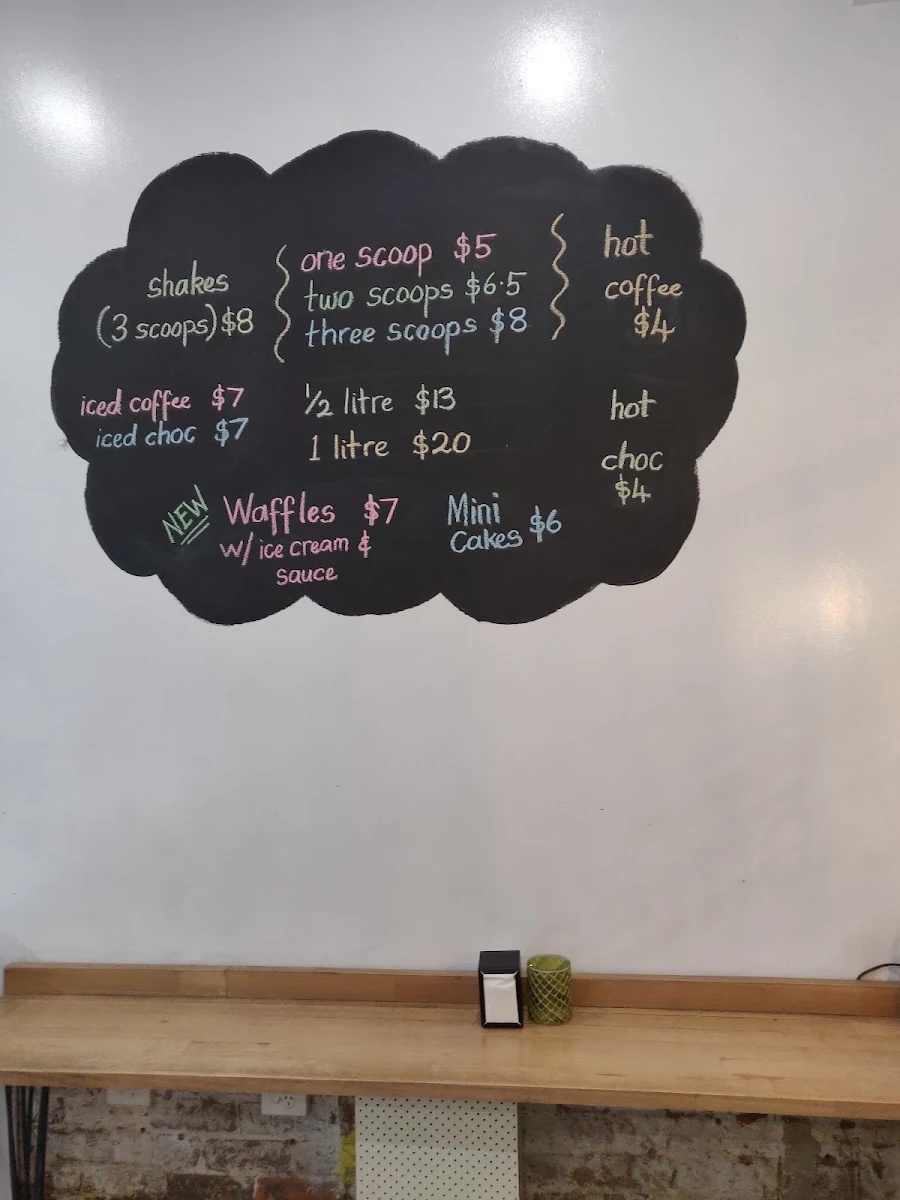 shakes
(3 scoops) $8
one scoop $5
two scoops $6.5
three scoops $8
hot
coffee
$4
iced coffee $7
iced choc $7
1/2 litre $13
1 litre $20
hot
choc
$4
NEW
Waffles $7
w/ ice cream &
sauce
Mini
Cakes $6